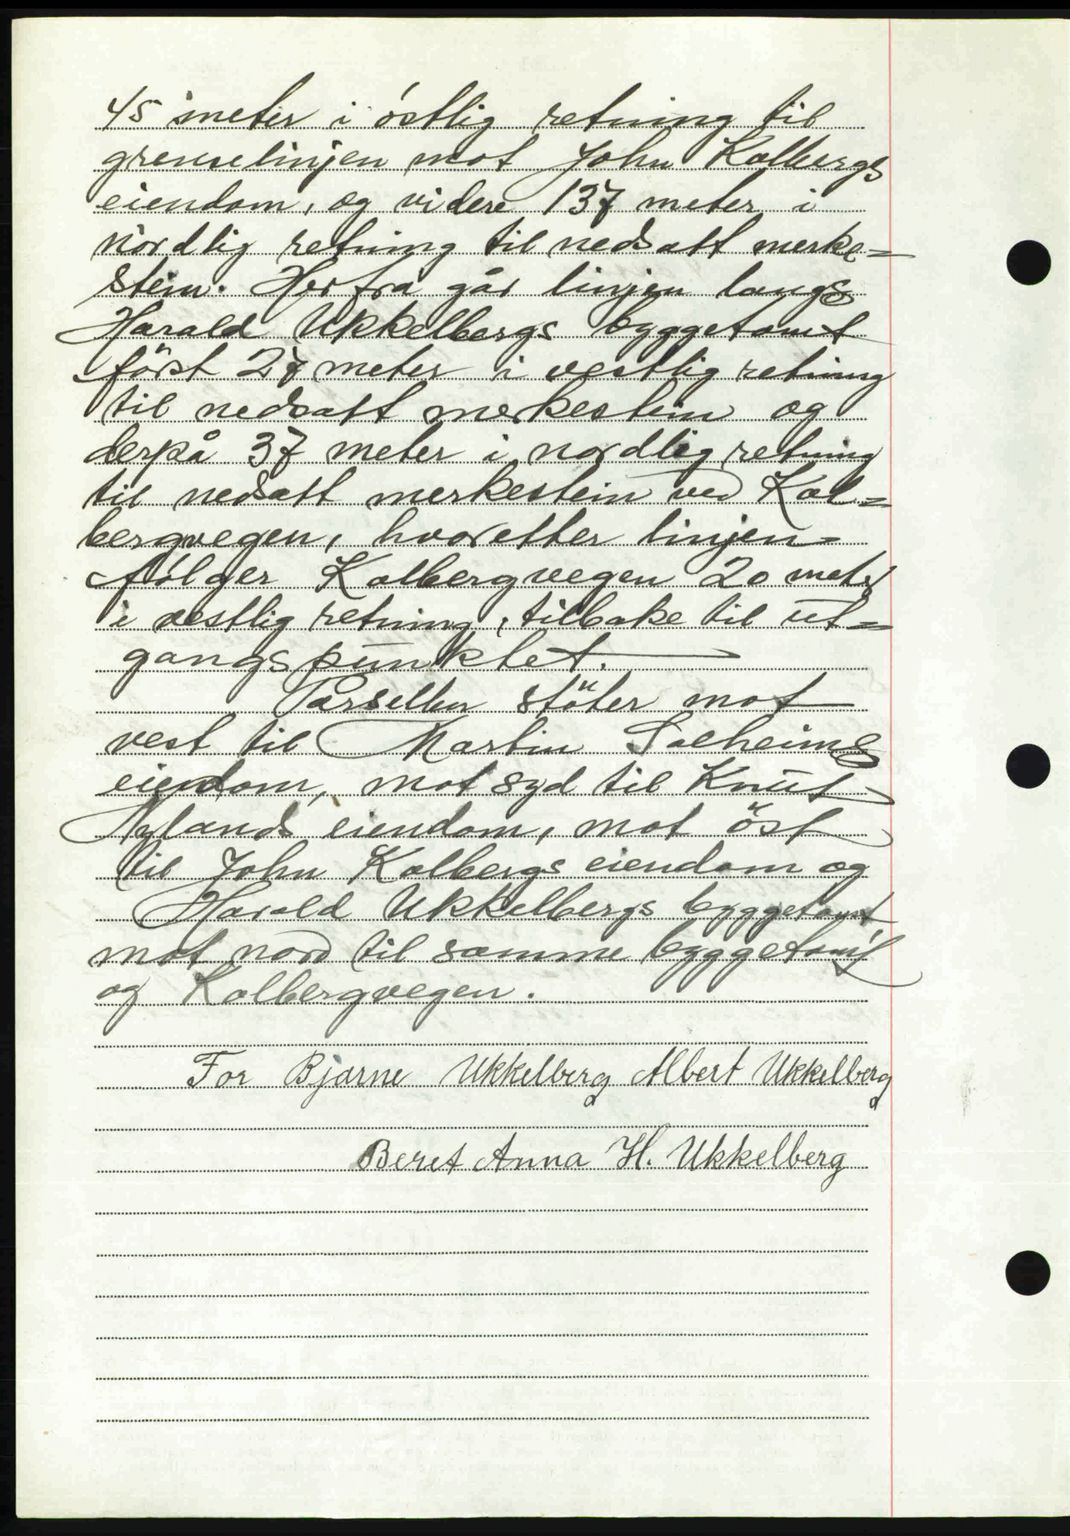 45 meter i östlig retning til
grenselinjen mot John Kolbergs
eiendom, og videre 137 meter i
nördlig retning til nedsatt merke=
stein. Herfra går linjen langs
Harald Ukkelbergs byggetomt
först 27 meter i vestlig retning
til nedsatt merkestein og
derpå 37 meter i nordlig retning
til nedsatt merkestein ved Kol=
bergvegen, hvoretter linjen
fölger Kolbergvegen 20 meter
i vestlig retning, tilbake til ut=
gangspunktet.
Parsellen stöter mot
vest til Martin Solheims
eiendom, mot syd til Knut
Nylands eiendom, mot öst
til John Kolbergs eiendom og
Harald Ukkelbergs byggetomt
mot nord til samme byggetomt
og Kolbergvegen.
For Bjarne Ukkelberg Albert Ukkelberg
Beret Anna H. Ukkelberg